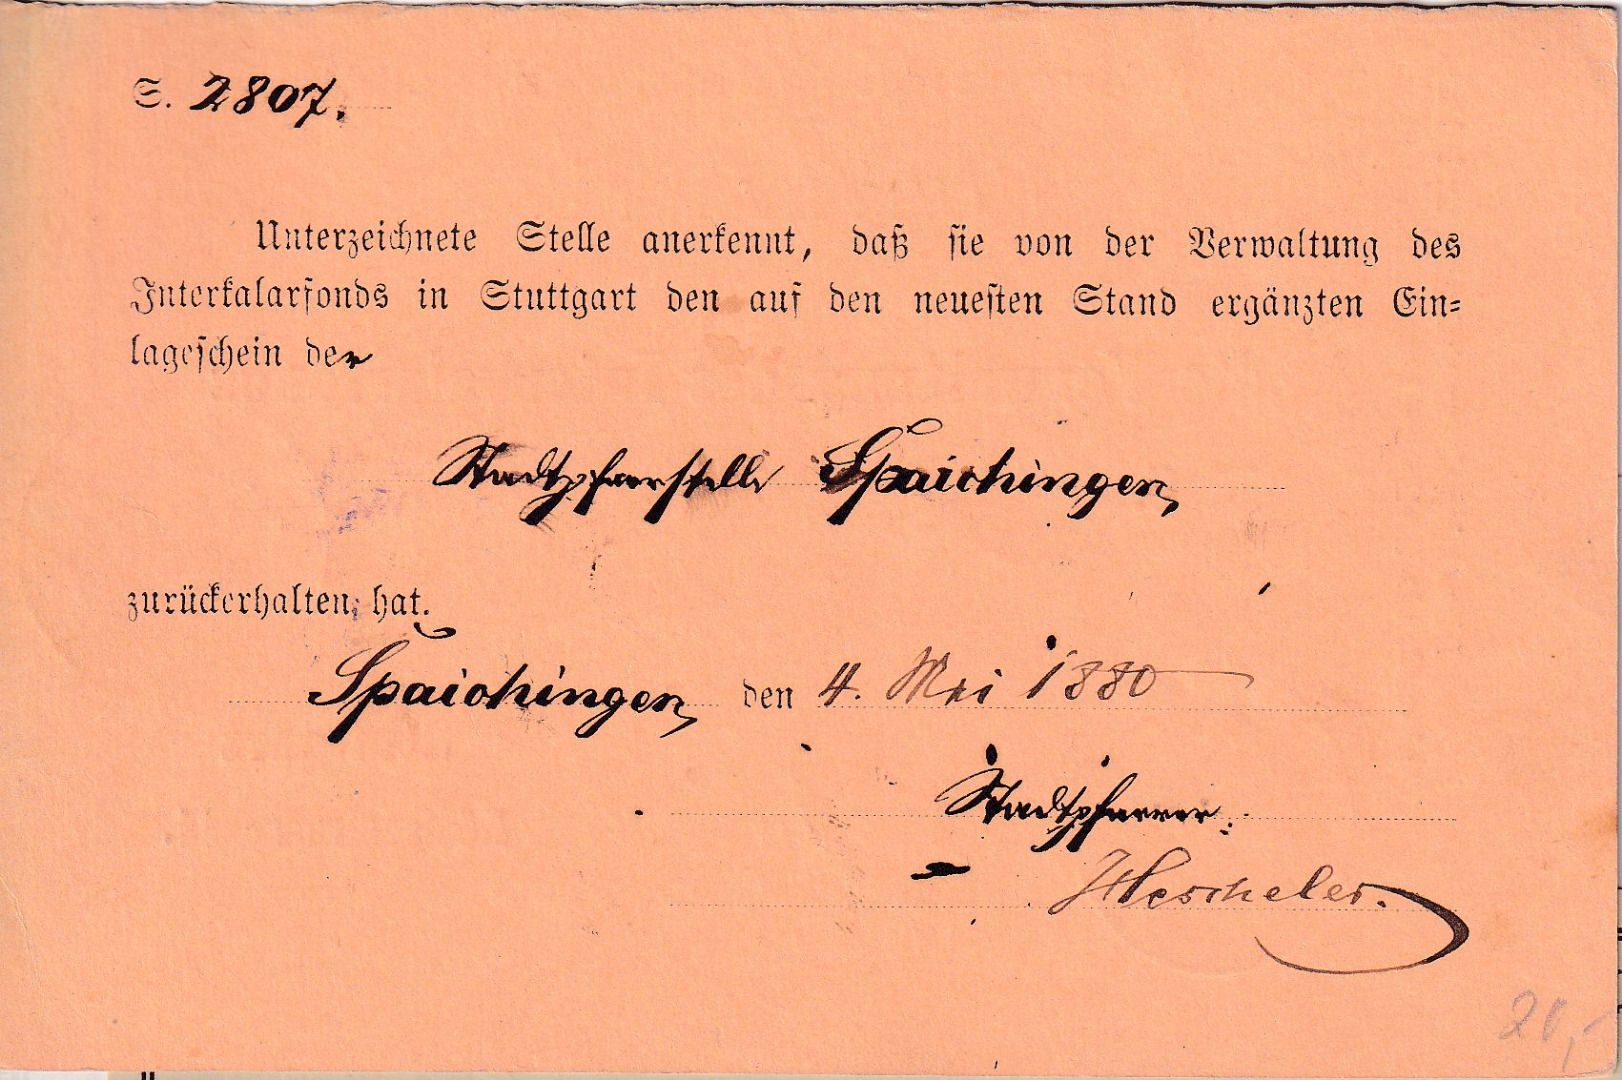 S. 2807.
Unterzeichnete Stelle anerkennt, daß sie von der Verwaltung des
Interkalarfonds in Stuttgart den auf den neuesten Stand ergänzten Ein-
lageschein der
Stadtpfarrstelle Spaichingen
zurückerhalten hat.
Spaichingen, den 4. Mai 1880
Stadtpfarrer:
Hescheler.
20,-